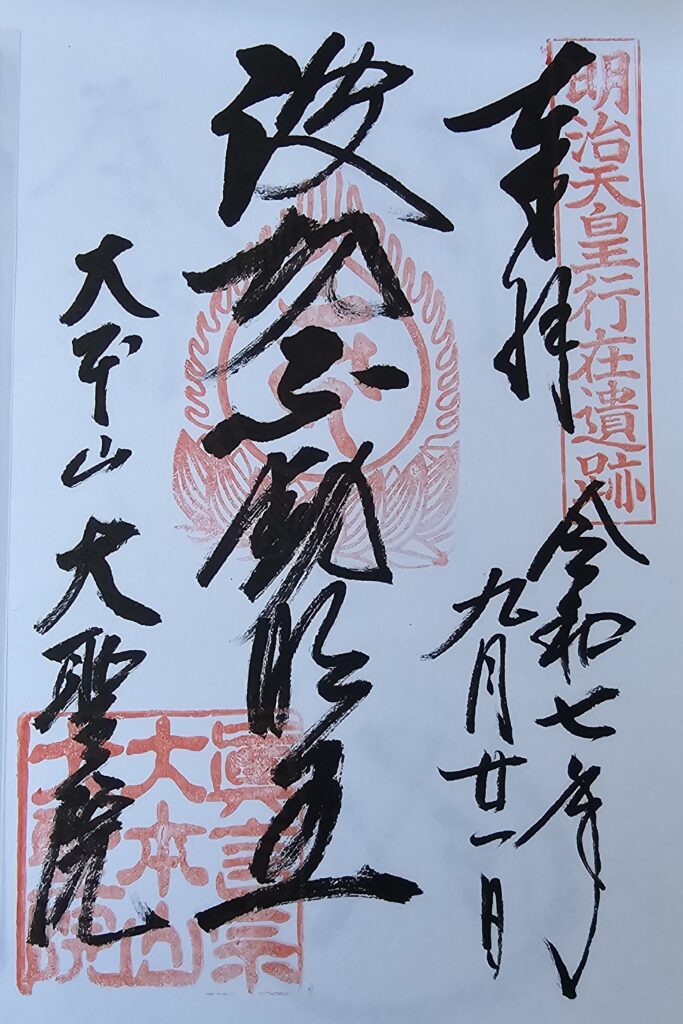 明治天皇行在遺跡
奉拝
令和七年
九月廿一日
波切不動明王
大本山 大聖院
眞言宗
大本山
大聖院